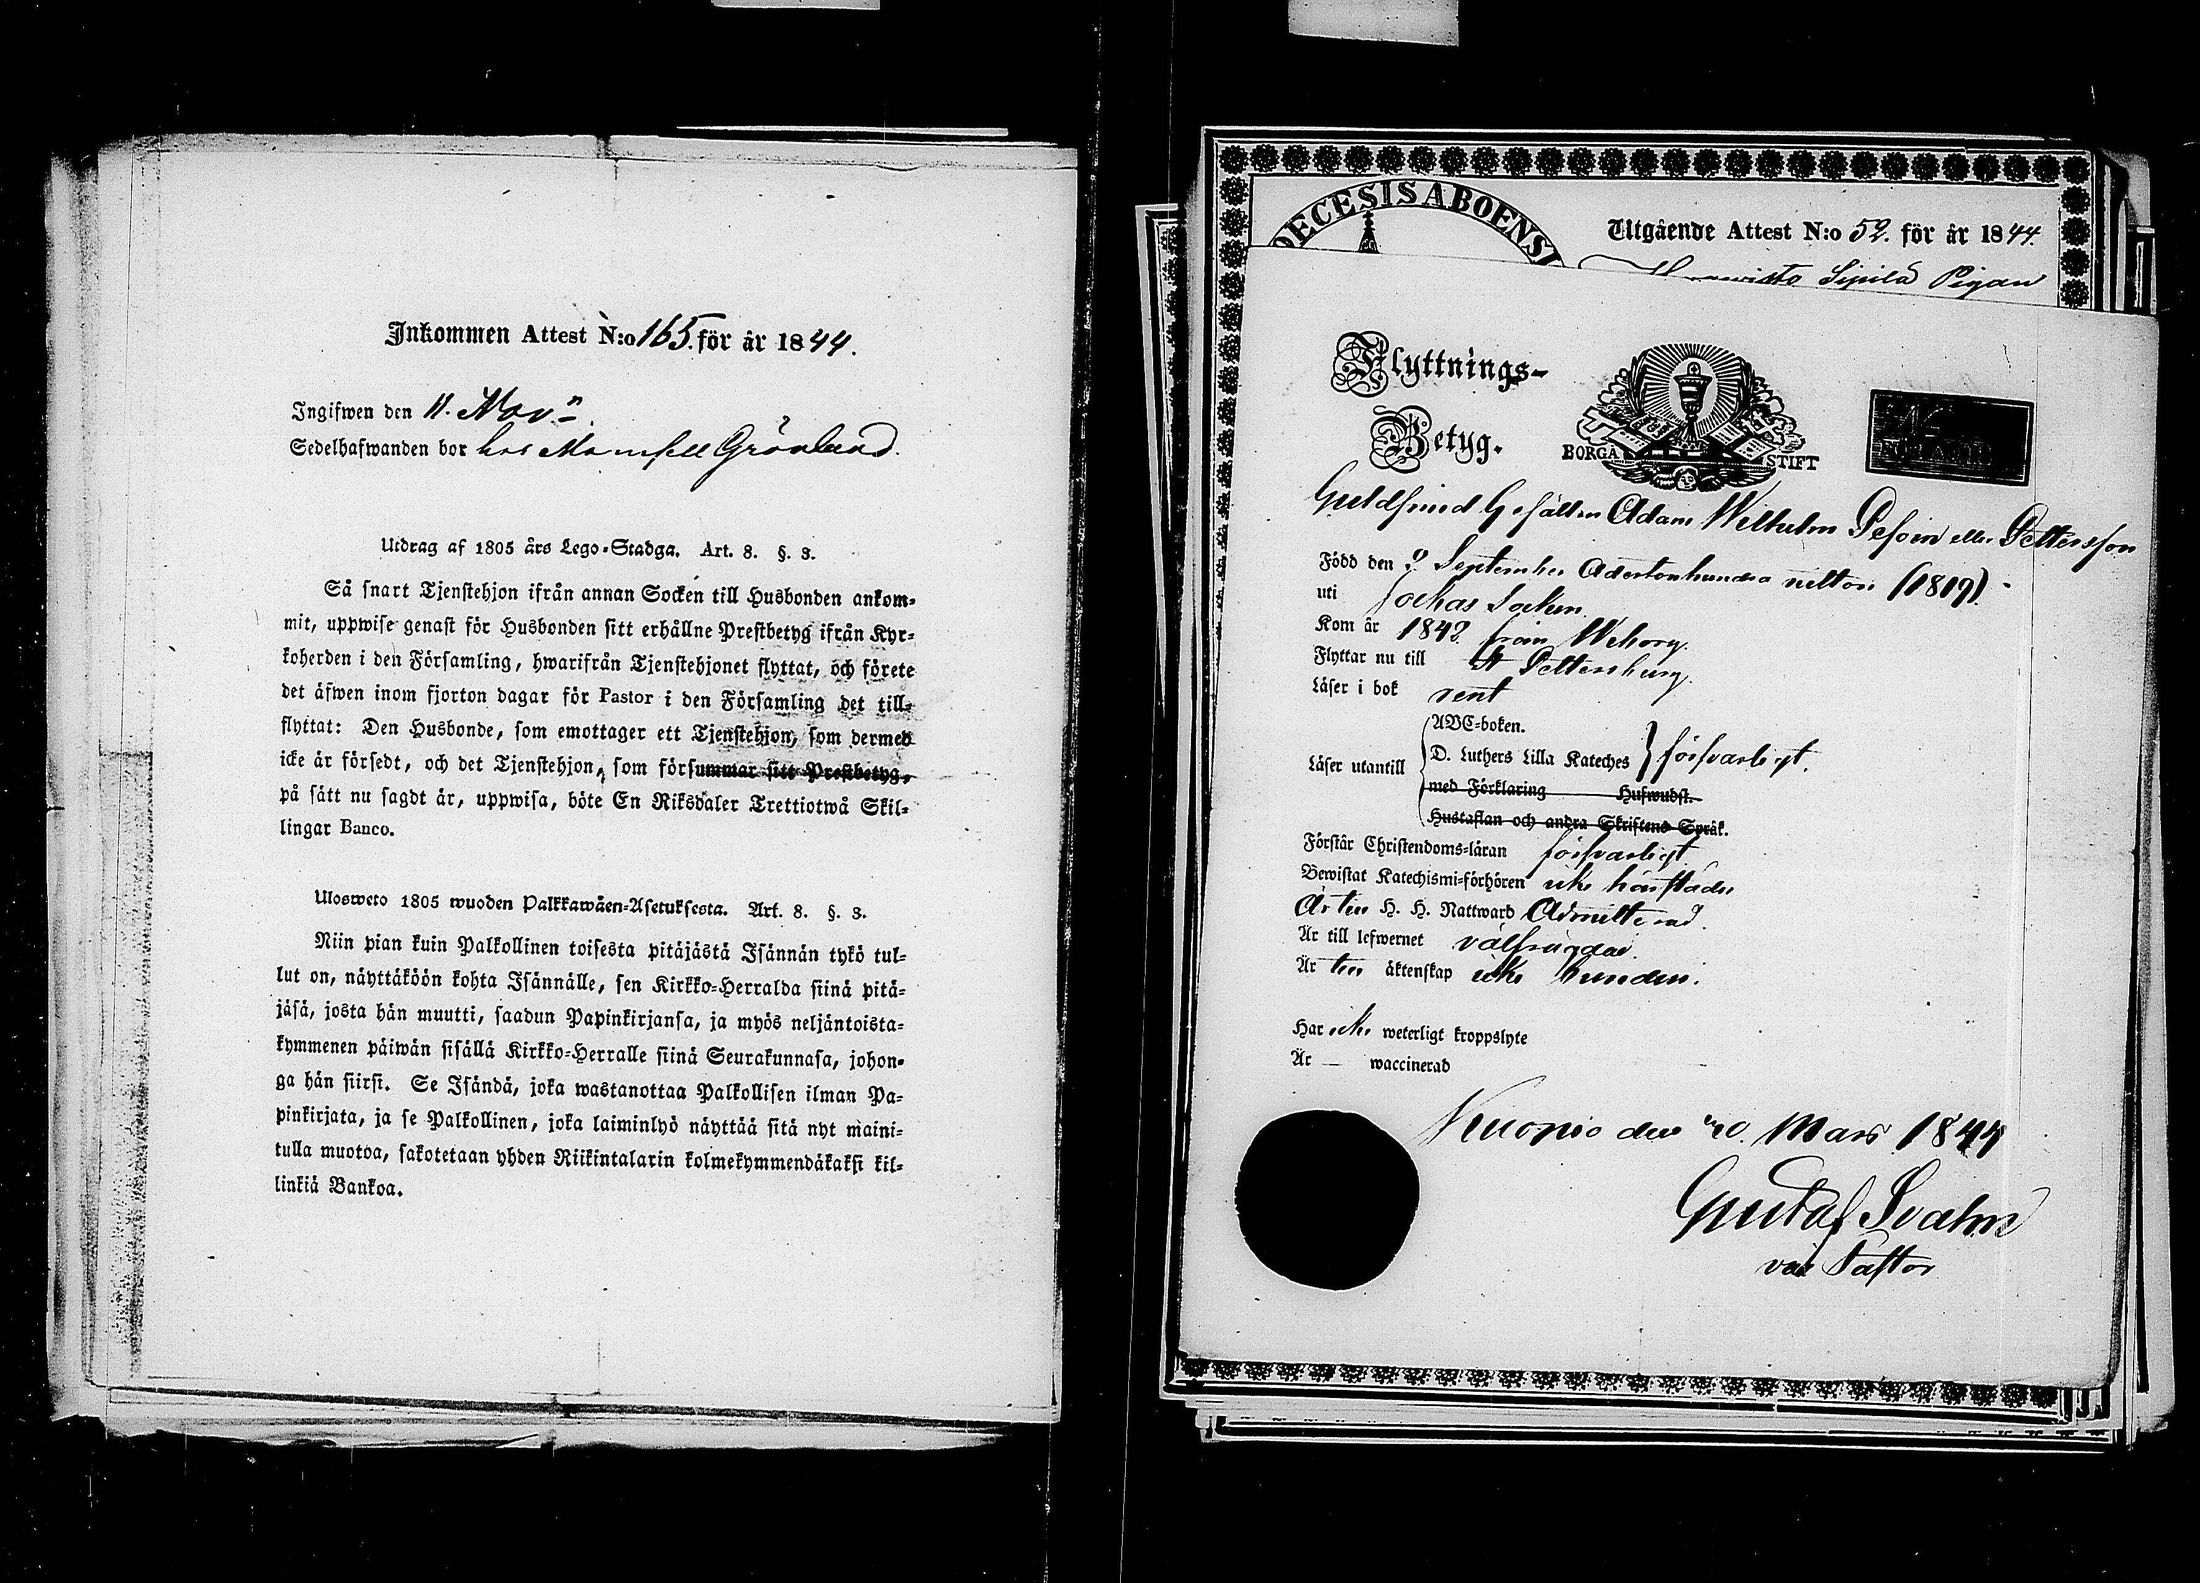 Inkommen Attest N:o 165. för år 1844.
Ingifwen den 11. Novn
Sedelhafwanden bor hos Mamsell Grönlund.
Utdrag af 1805 års Lego-Stadga. Art. 8. §. 3.
Så snart Tjenstehjon ifrån annan Socken till Husbonden ankom-
mit, uppwise genast för Husbonden sitt erhållne Prestbetyg ifrån Kyr-
koherden i den Församling, hwarifrån Tjenstehjonet flyttat, och förete
det äfwen inom fjorton dagar för Pastor i den Församling det till-
flyttat: Den Husbonde, som emottager ett Tjenstehjon, som dermed
icke är försedt, och det Tjenstehjon, som försummar sitt Prestbetyg,
på sätt nu sagdt är, uppwisa, böte En Riksdaler Trettiotwå Skil-
lingar Banco.
Ulosweto 1805 wuoden Palkkawäen-Asetuksesta. Art. 8. §. 3.
Niin pian kuin Palkollinen toisesta pitäjästä Isännän tykö tul-
lut on, näyttäköön kohta Isännälle, sen Kirkko-Herralda siinä pitä-
jäsä, josta hän muutti, saadun Papinkirjansa, ja myös neljäntoista-
kymmenen päiwän sisällä Kirkko-Herralle siinä Seurakunnasa, johon-
ga hän siirsi. Se Isändä, joka wastanottaa Palkollisen ilman Pa-
pinkirjata, ja se Palkollinen, joka laiminlyö näyttää sitä nyt maini-
tulla muotoa, sakotetaan yhden Riikintalarin kolmekymmendäkaksi kil-
linkiä Bankoa.
DECESIS ABOENSI
Utgående Attest N:o 52. för år 1844.
Sipilä Pigan
Flyttnings-
Betyg.
BORGÅ STIFT
Guldsmed Gesällen Adam Wilhelm Pesoin eller Pettersson
Född den 9 September Adertonhundra nitton (1819).
uti Jockas Socken.
Kom år 1842 från Wiborg.
Flyttar nu till St Pettersburg.
Läser i bok rent
Läser utantill
ABC-boken.
D. Luthers Lilla Kateches försvarligt.
med Förklaring Hufwudst.
Hustaflan och andra Skriftens Språk.
Förstår Christendoms-läran försvarligt
Bewistat Katechismi-förhören icke härstädes
Är till H. H. Nattward Admitterad.
Är till lefwernet välfrägdad.
Är till äktenskap icke bunden.
Har icke weterligt kroppslyte
Är — waccinerad
Kuopio den 20. Mars 1844
Gustaf Svahn
vice Pastor